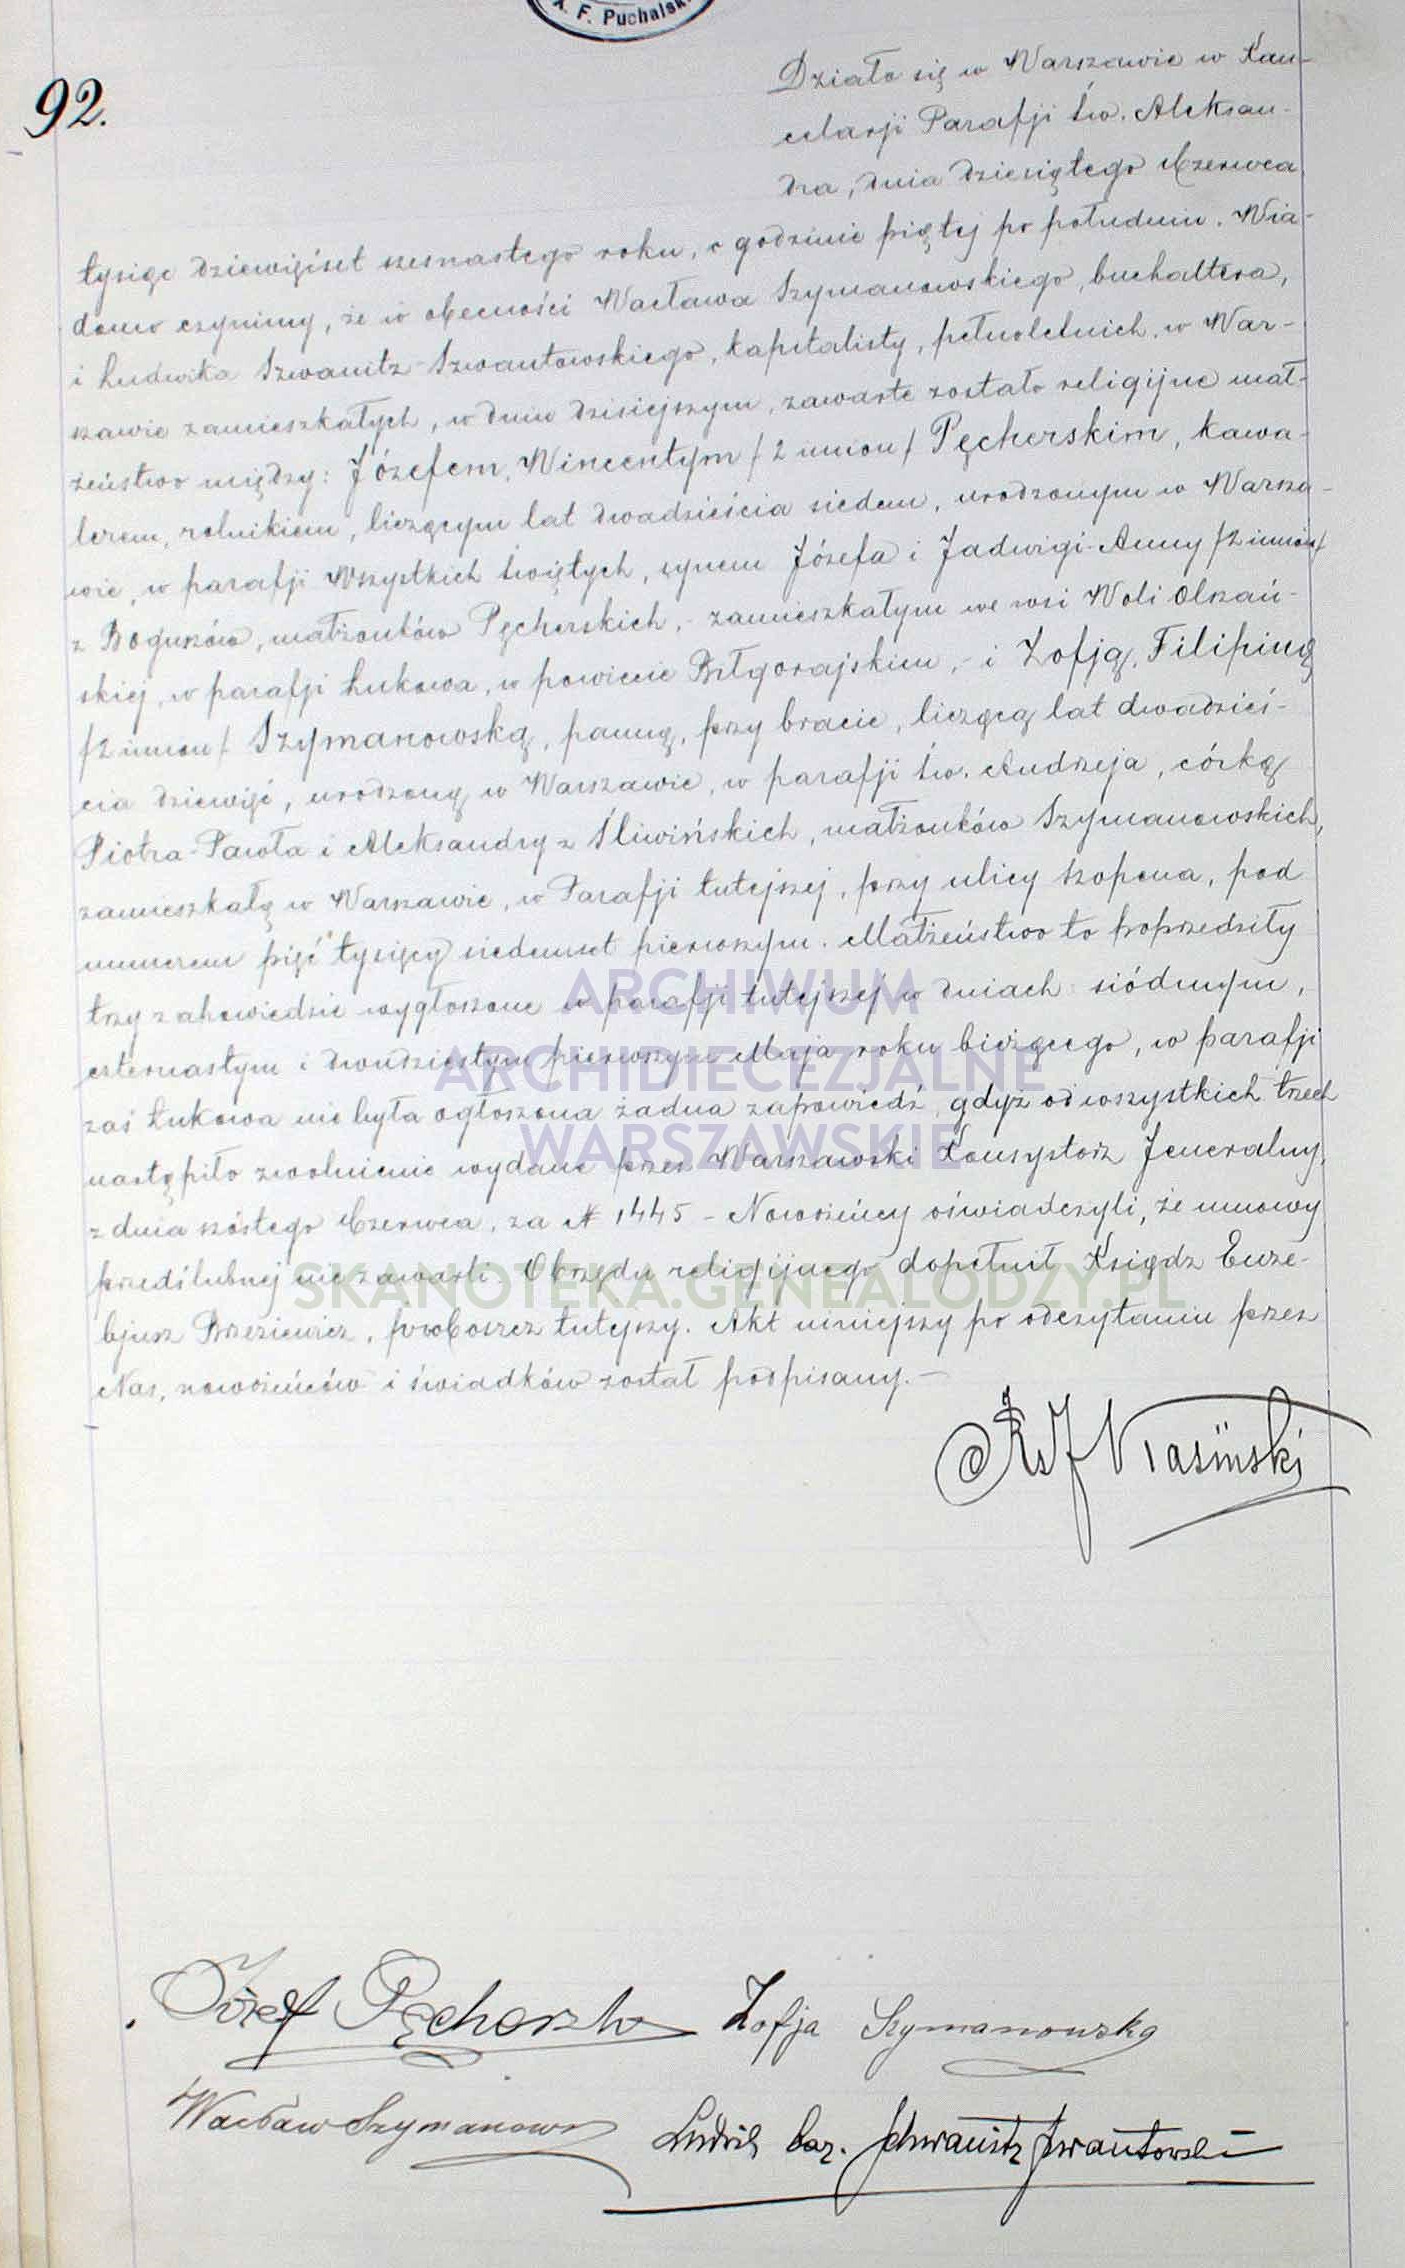 X. F. Puchalski
92.
Działo się w Warszawie w Kan-
celarji Parafji Św. Aleksan-
dra, dnia dziesiątego Czerwca
tysiąc dziewięćset szesnastego roku, o godzinie piątej po południu. Wia-
domo czynimy, że w obecności Wacława Szymanowskiego, buchaltera,
i Ludwika Szwanitz-Szwantowskiego, kapitalisty, pełnoletnich, w War-
szawie zamieszkałych, w dniu dzisiejszym, zawarte zostało religijne mał-
żeństwo między: Józefem, Wincentym /2 imion/ Pęcherskim, kawa-
lerem, rolnikiem, liczącym lat dwadzieścia siedem, urodzonym w Warsza-
wie, w parafji Wszystkich Świętych, synem Józefa i Jadwigi-Anny /2 imion/
z Boguszów, małżonków Pęcherskich, - zamieszkałym we wsi Woli
skiej, w parafji Łukowa, w powiecie Biłgorajskim, - i Zofją, Filipiną
/2 imion/ Szymanowską, panną, przy bracie, liczącą lat dwadzieś-
cia dziewięć, urodzoną w Warszawie, w parafji Św. Andrzeja, córką
Piotra-Pawła i Aleksandry z Śliwińskich, małżonków Szymanowskich,
zamieszkałą w Warszawie, w Parafji tutejszej, przy ulicy Szopena, pod
numerem pięć tysięcy siedemset pierwszym. Małżeństwo to poprzedziły
trzy zapowiedzie wygłoszone w parafji tutejszej w dniach: siódmym,
czternastym i dwudziestym pierwszym Maja roku bieżącego, w parafji
zaś Łukowa nie była ogłoszona żadna zapowiedź, gdyż od wszystkich trzech
nastąpiło zwolnienie wydane przez Warszawski Konsystorz Jeneralny,
z dnia szóstego Czerwca, za № 1445 - Nowożeńcy oświadczyli, że umowy
przedślubnej nie zawarli. Obrzędu religijnego dopełnił Ksiądz Euze-
bjusz Brzeziewicz, proboszcz tutejszy. Akt niniejszy po odczytaniu przez
Nas, nowożeńców i świadków został podpisany. -
Ks J
Józef Pęcherski Zofja Szymanowska
Wacław Szymanowski Ludwik bar. Schwanitz Szwantowski
ARCHIWUM
ARCHIDIECEZJALNE
WARSZAWSKIE
SKANOTEKA.GENEALODZY.PL